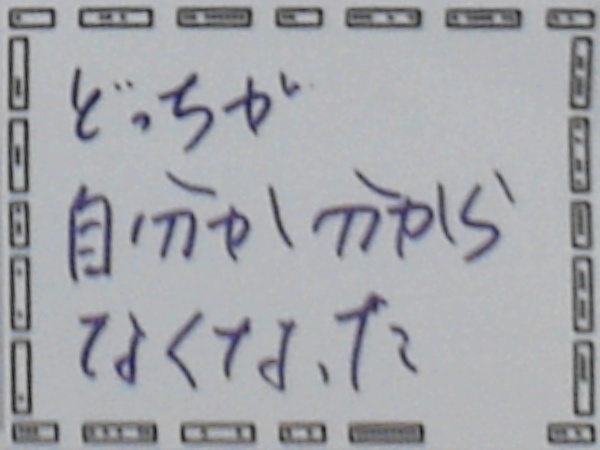 どっちが
自分か分から
なくなった